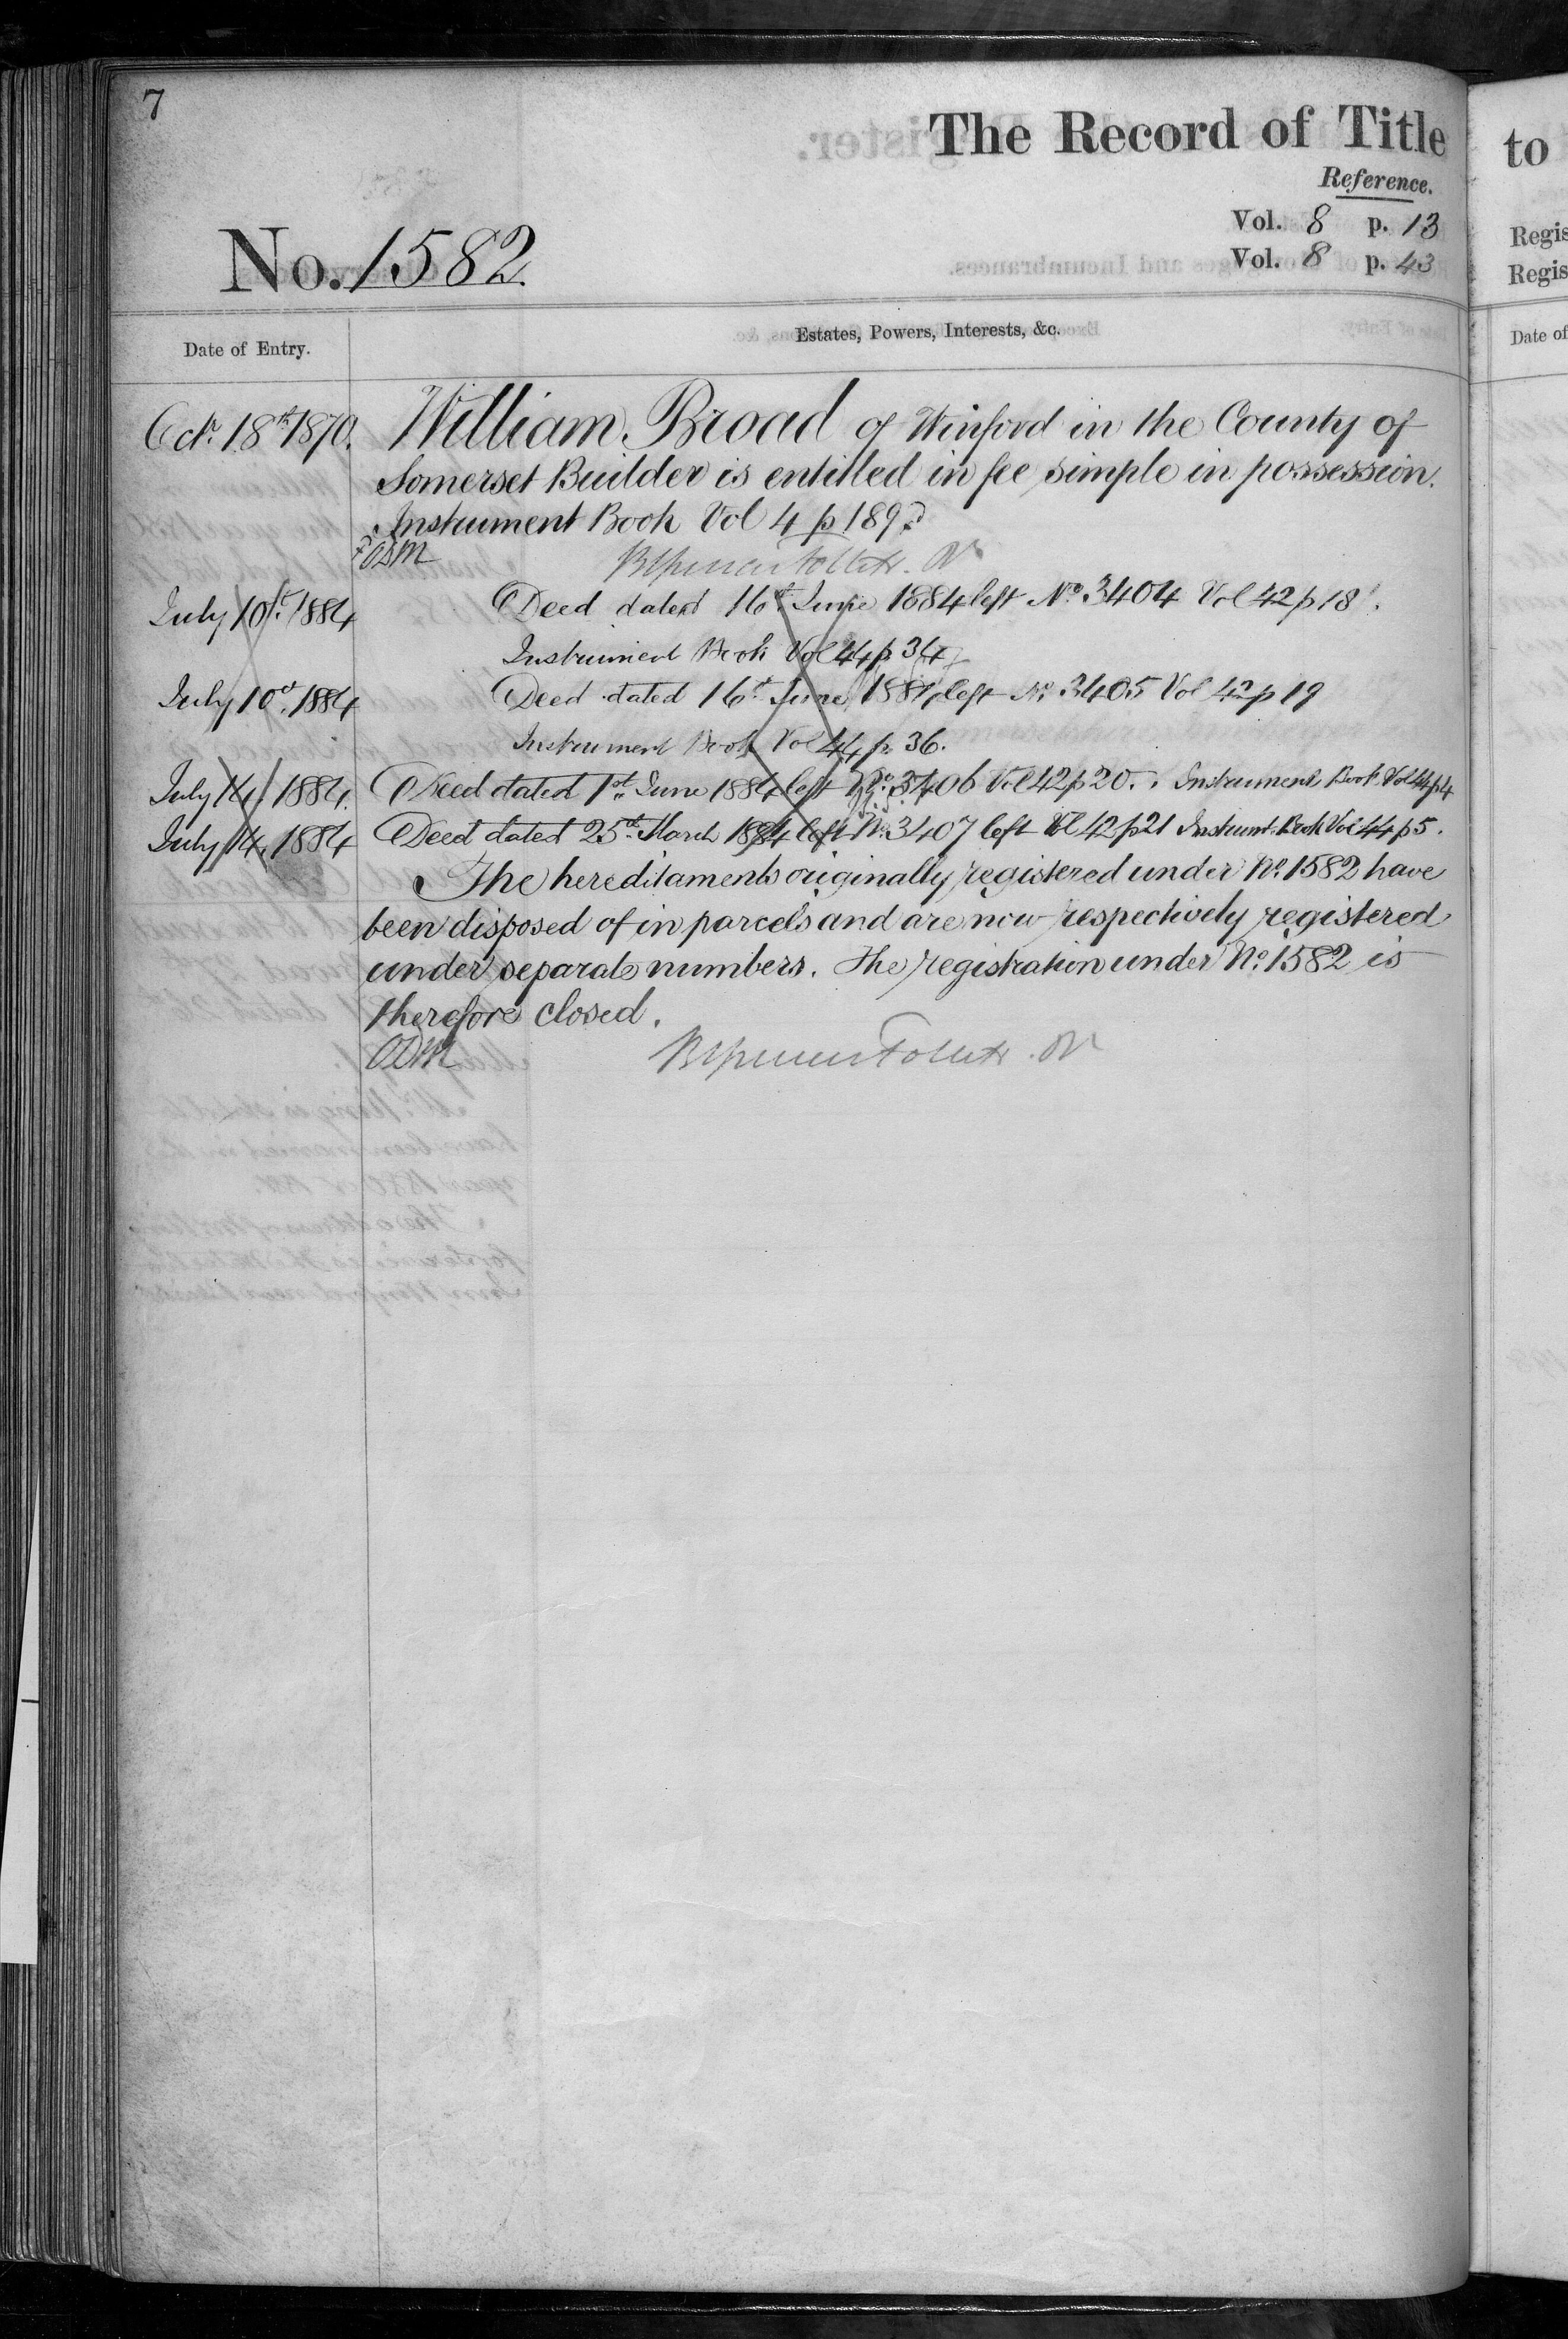 7
The Record of Title
to
Reference.
Vol. 8 p. 13
Vol. 8 p. 43
Regis
Regis
No. 1582.
Date of Entry.
Estates, Powers, Interests, &c.
Date of
Octr. 18th 1870. William Broad of Winford in the County of
Somerset Builder is entitled in fee simple in possession.
Instrument Book Vol 4 p 189
July 10th 1884 Deed dated 16th June 1884 left No. 3404 Vol 42 p 18.
Instrument Book Vol 44 p 34
July 10th 1884 Deed dated 16th June 1884 left No. 3405 Vol 42 p 19
Instrument Book Vol 44 p 36.
July 14, 1884. Deed dated 1st June 1884 left No. 3406 Vol 42 p 20. Instrument Book Vol 44 p 4
July 14, 1884 Deed dated 25th March 1884 left No. 3407 left Vol 42 p 21 Instrumt. Book Vol 44 p 5.
The hereditaments originally registered under No. 1582 have
been disposed of in parcels and are now respectively registered
under separate numbers. The registration under No. 1582 is
therefore closed.